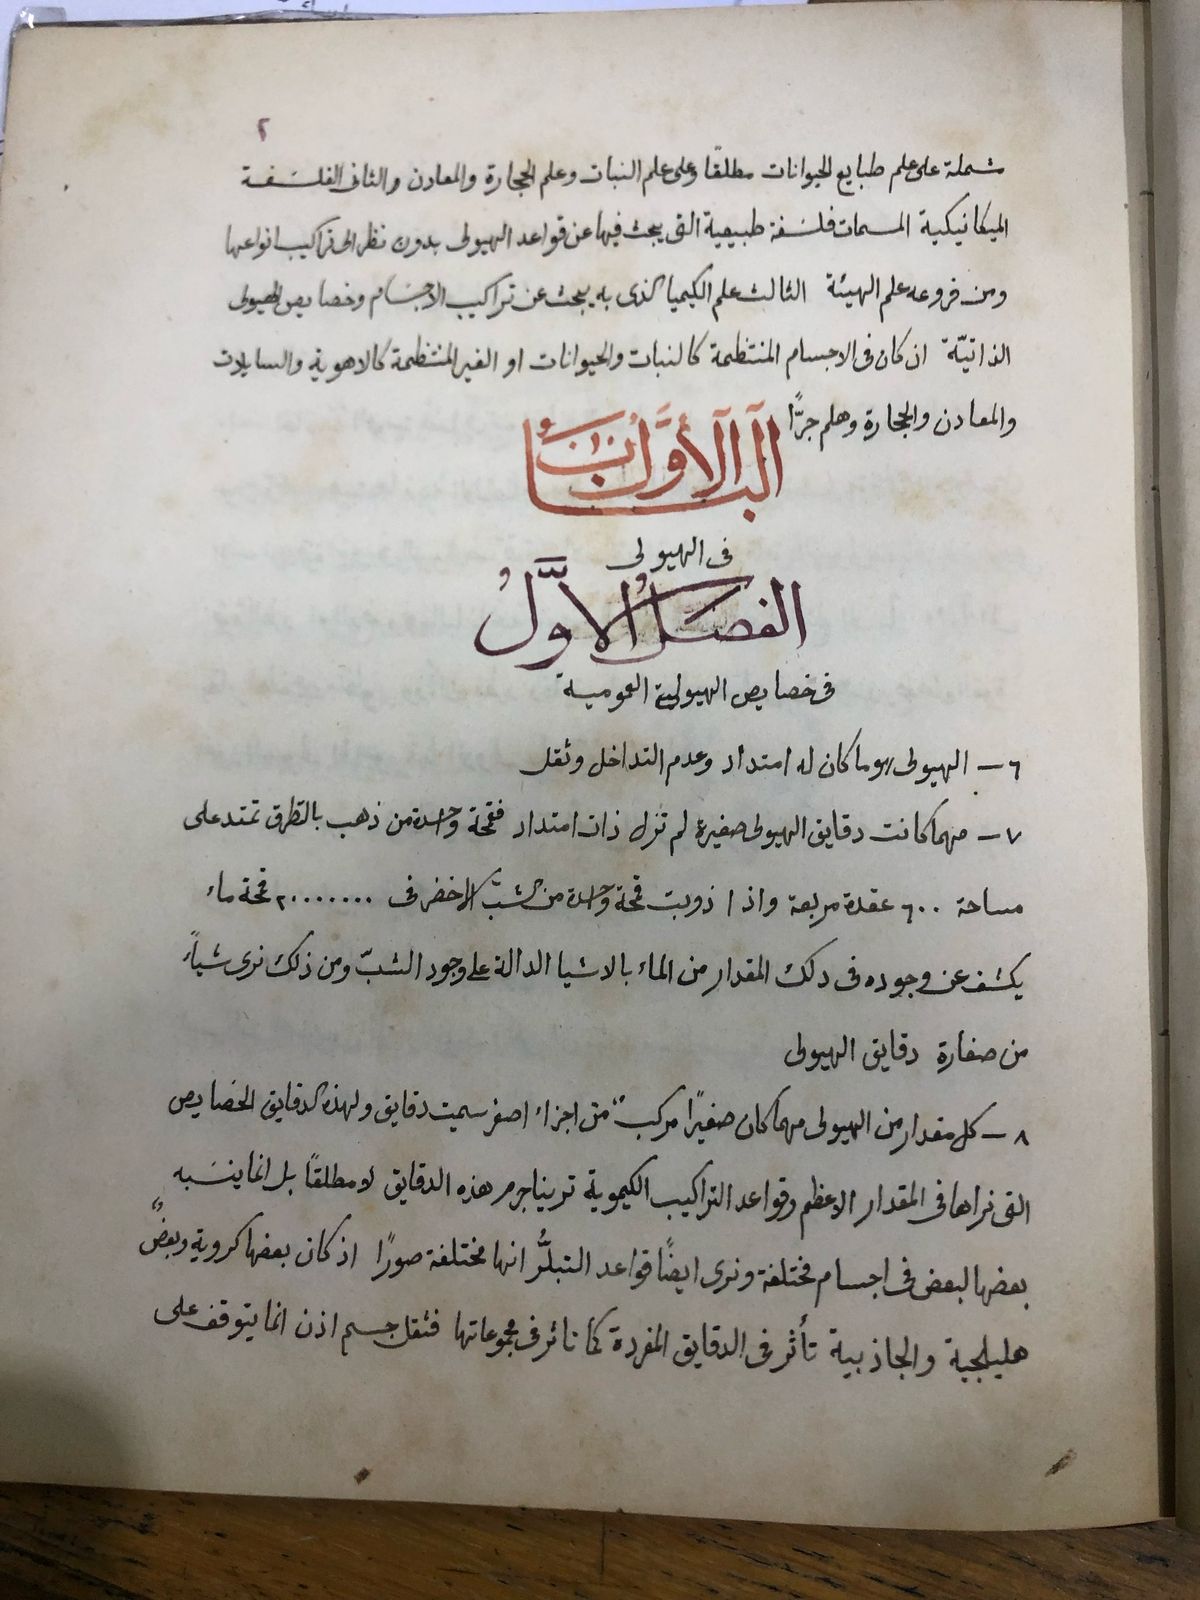 ٢
شملة على علم طبايع الحيوانات مطلقًا وعلى علم النبات وعلم الحجارة والمعادن والثانى الفلسفة
الميكانيكية المسمات فلسفة طبيعية التى يبحث فيها عن قواعد الهيولى بدون نظر الى تراكيب انواعها
ومن فروعه علم الهيئة الثالث علم الكيميا الذى به يبحث عن تراكيب الاجسام وخصايص الهيولى
الذاتيّة ان كان فى الاجسام المنتظمة كالنبات والحيوانات او الغير المنتظمة كالاهوية والسايلات
والمعادن والحجارة وهلم جرًّا
الباب الأوّل
فى الهيولى
الفصل الاوّل
فى خصايص الهيولية العمومية
٦ – الهيولى هوما كان له امتداد وعدم التداخل وثقل
٧ – مهما كانت دقايق الهيولى صغيرة لم تزل ذات امتداد فقمحة واحدة من ذهب بالتطرق تمتد على
مساحة ٦٠٠ عقدة مربعة واذا ذوبت قمحة واحدة من الشبّ الاخضر فى ٢٠٠٠٠٠٠٠ قمحة ماء
يكشف عن وجوده فى ذلك المقدار من الماء بالاشيا الدالة على وجود الشبّ ومن ذلك نرى شياً
من صغارة دقايق الهيولى
٨ – كل مقدار من الهيولى مهما كان صغيرًا مركبٌ من اجزاء اصغر سميت دقايق ولهذه الدقايق الخصايص
التى نراها فى المقدار الاعظم وقواعد التراكيب الكيموية ترينا جرم هذه الدقايق لا مطلقًا بل انما ينسبه
بعضها لبعض فى اجسام مختلفة ونرى ايضًا قواعد التبلُّر انها مختلفة صورًا اذ كان بعضها كروية وبعضٌ
هليلجية والجاذبية تأثر فى الدقايق المفردة كما تاثر فى مجموعاتها فثقل جسم اذن انما يتوقف على